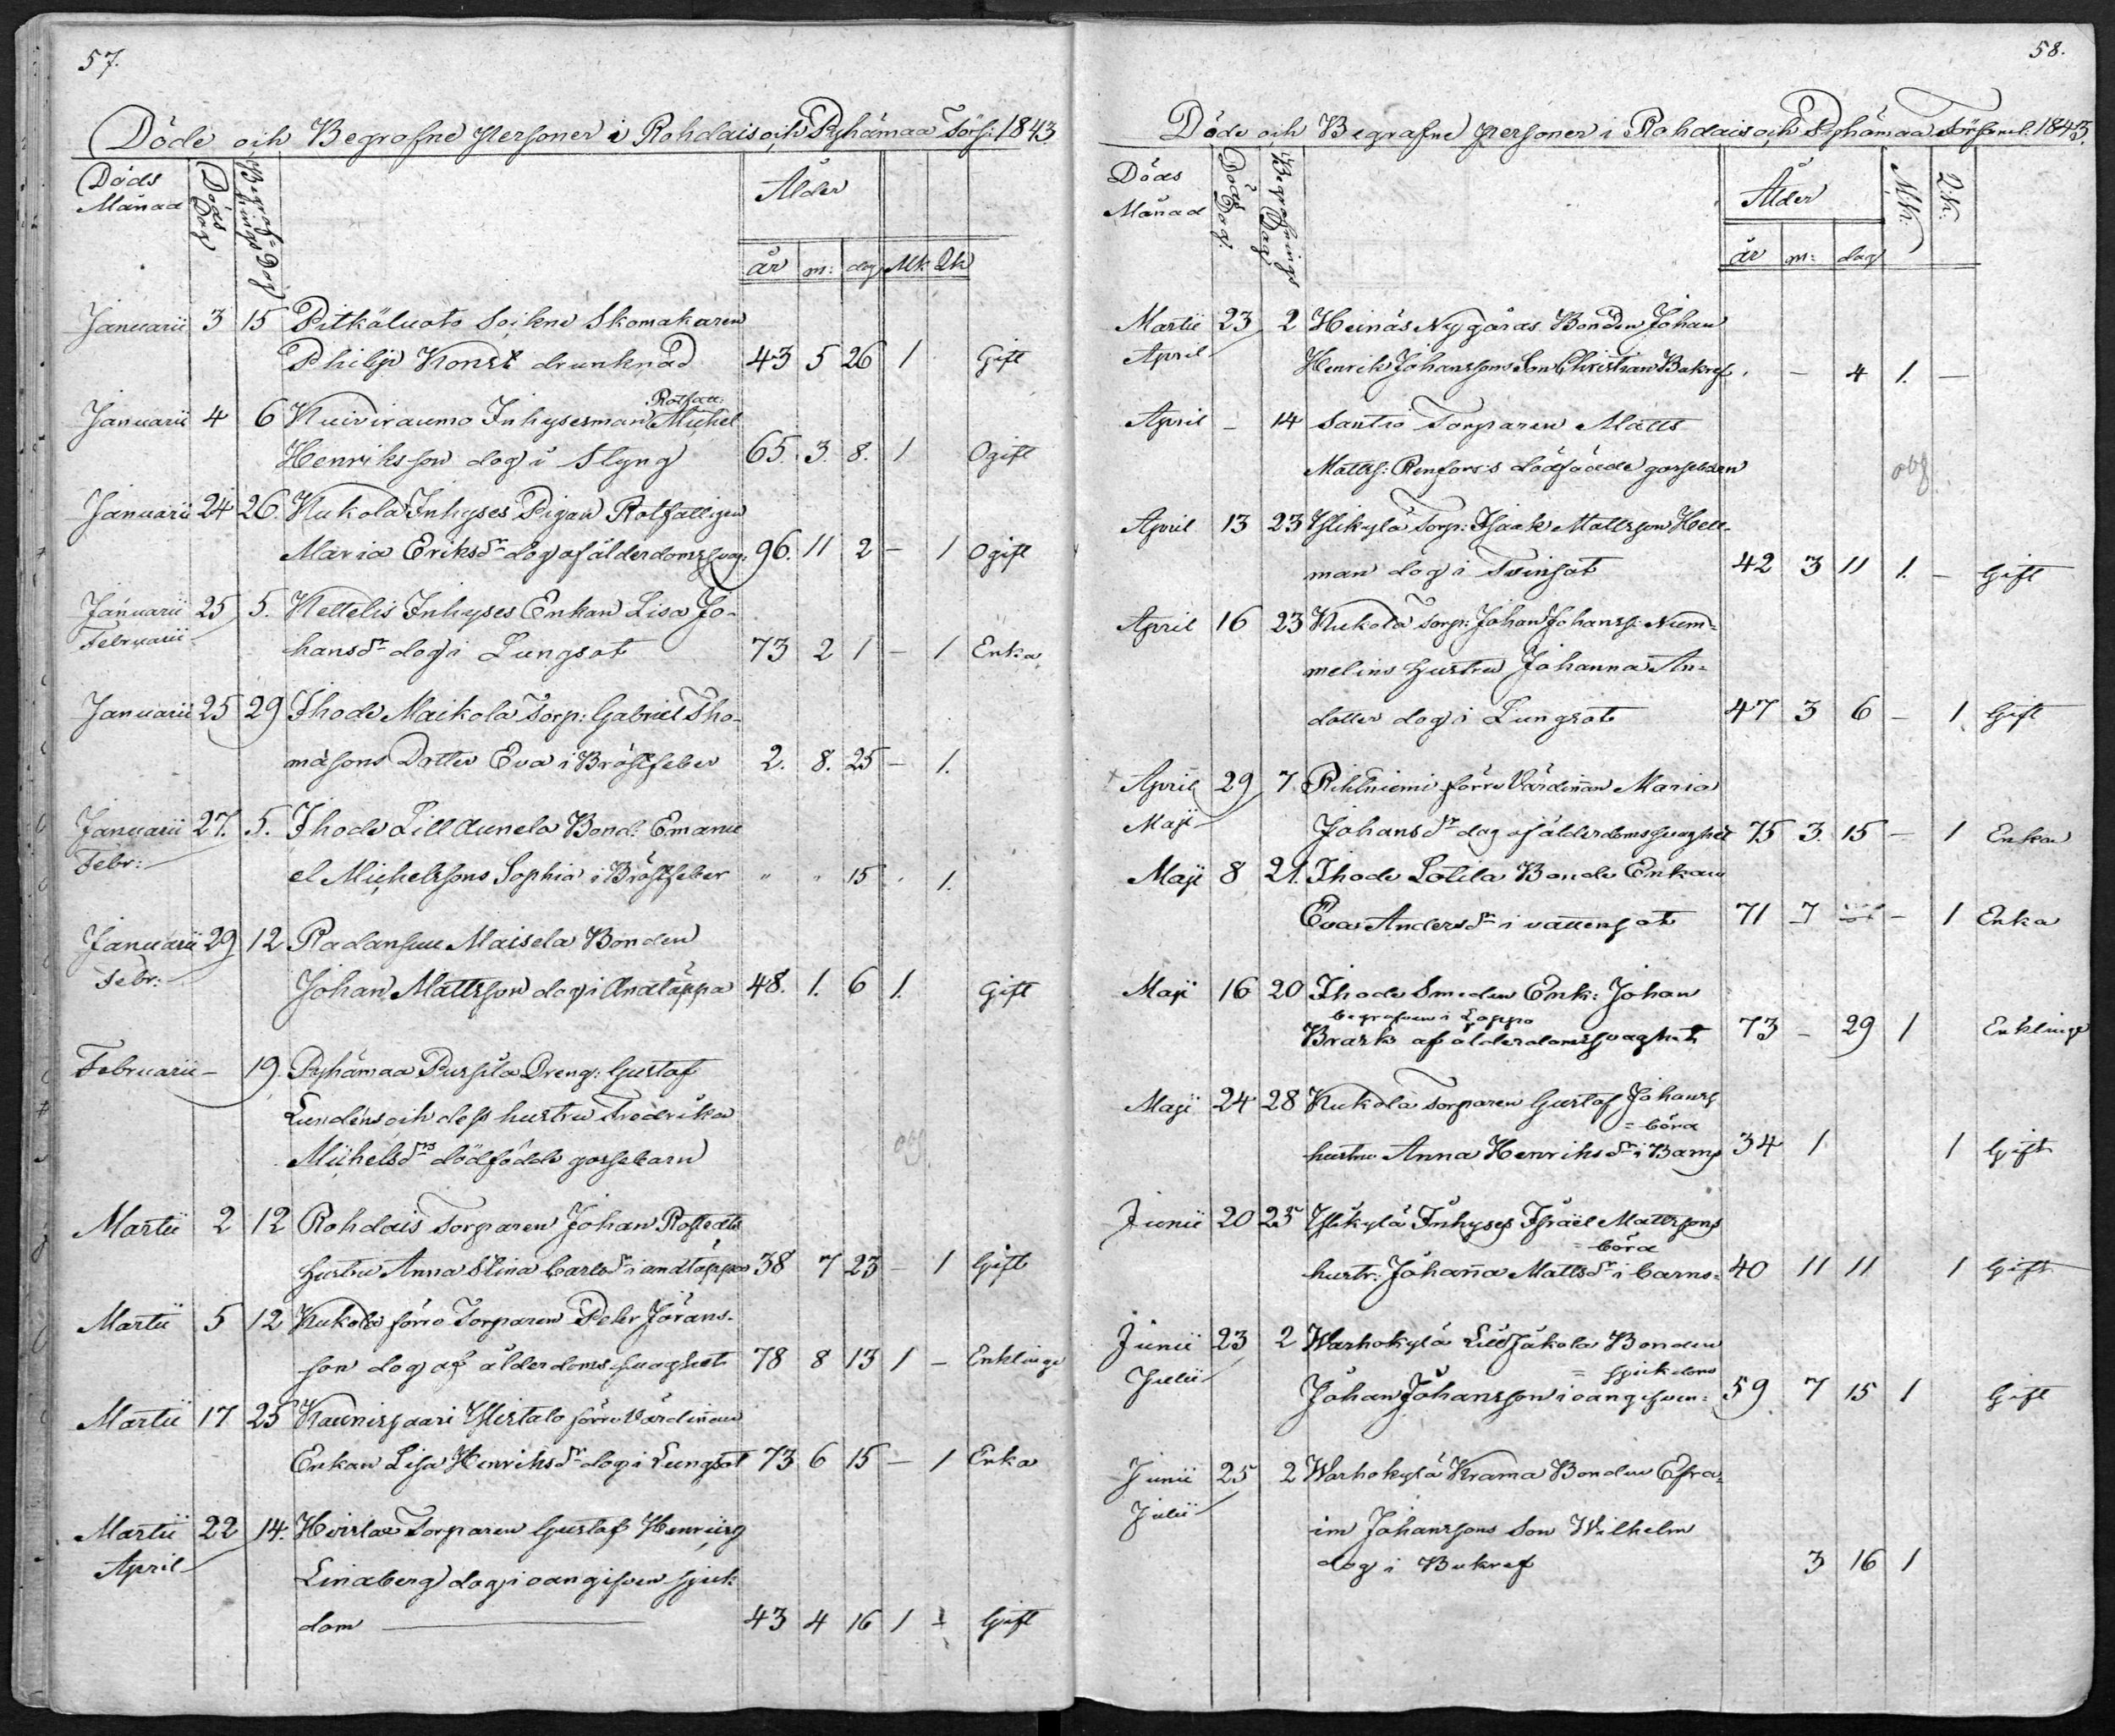 57.
Döde och Begrafne personer i Rohdais och Pyhämaa Förs: 1843
Döds Månad Döds Dag Begrafnings Dag Ålder
år m: dag Mk Qk
Januarii 3 15 Pitkäluoto Soikne Skomakaren
Philip Konst drunknad 43 5 26 1 Gift
Rotfatt:
Januarii 4 6 Kuiviraumo Inhysesman Michel
Henriksson dog i Slyng 65. 3. 8. 1 Ogift
Januarii 24 26. Kukola Inhyses Pigan Rotfattigen
Maria Eriksdr dog af ålderdomssvag. 96. 11 2 - 1 Ogift
Januarii 25 5. Kettelis Inhyses Enkan Lisa Jo-
Februarii hansdr dog i Lungsot 73 2 1 - 1 Enka
Januarii 25 29 Ihode Maikola Torp: Gabriel Tho-
masons Dotter Eva i Bröstfeber 2. 8. 25 - 1.
Januarii 27. 5. Ihode Lill Aunela Bond: Emanu
Febr: el Michelssons Sophia i Bröstfeber " " 15 . 1.
Januarii 29 12 Radansuu Maisela Bonden
Febr: Johan Mattsson dog i Andtäppa 48. 1. 6 1. Gift
Februarii - 19. Pyhämaa Pursila Dreng: Gustaf
Lundéns och dess hustru Fredrika
Michelsdrs dödfödde gossebarn obs
Martii 2 12 Rohdais Torparen Johan Rostedts
hustru Anna Stina Carlsdr i andtäppa 38 7 23 - 1 Gift
Martii 5 12 Kukola förre Torparen Peter Jörans-
son dog af ålderdomssvaghet 78 8 13 1 - Enkling
Martii 17 25 Kaunissaari Ylistalo förre Värdinnan
Enkan Lisa Henriksdr dog i Lungsot 73 6 15 - 1 Enka
Martii 22 14. Torparen Gustaf Henriss
April Linaberg dog i oangifven sjuk-
dom 43 4 16 1 Gift
58.
Döde och Begrafne personer i Rohdais och Pyhämaa Församl. 1843.
Döds Månad Döds Dag. Begrafnings Dag Ålder M.k. Q.k.
år m: dag
Martii 23 2 Heinäs Nygårds Bonden Johan
April Henrik Johanssons Son Christian Bukref. - 4 1. -
April - 14 Santio Torparen Matts
Mattss: Renfors's dödfödde gossebarn obs
April 13 23 Ylikylä Torp: Isaak Mattsson Hell-
man dog i Tvinsot 42 3 11 1. - Gift
April 16 23 Kukola Torp: Johan Johanss: Num-
melins hustru Johanna An-
dotter dog i Lungsot 47 3 6 - 1 Gift
April 29 7. Rihtniemi förre Värdinnan Maria
Maji Johansdr dog af ålderdomssvaghet 75 3. 15 - 1 Enka
Maji 8 21. Ihode Lotila Bonde Enkan
Eva Andersdr i vattensot 71 7 - 1 Enka
Maji 16 20 Ihode Smeden Enk: Johan
begrafven i Lappo
Brask af ålderdomssvaghet 73 - 29 1 Enkling
Maji 24 28 Kukola Torparen Gustaf Johanss
=börd
hustru Anna Henriksdr i Barns 34 1 1 Gift
Junii 20 25 Ylikylä Inhyses Israel Mattssons
=börd
hustr: Johanna Mattsdr i barns- 40 11 11 1 Gift
Junii 23 2 Warhokylä Lill Jakola Bonden
= sjukdom
Julii Johan Johansson i oangifven- 59 7 15 1 Gift
Junii 25 2 Warhokylä Krama Bonden Efra-
Julii im Johanssons Son Wilhelm
dog i Bukref 3 16 1